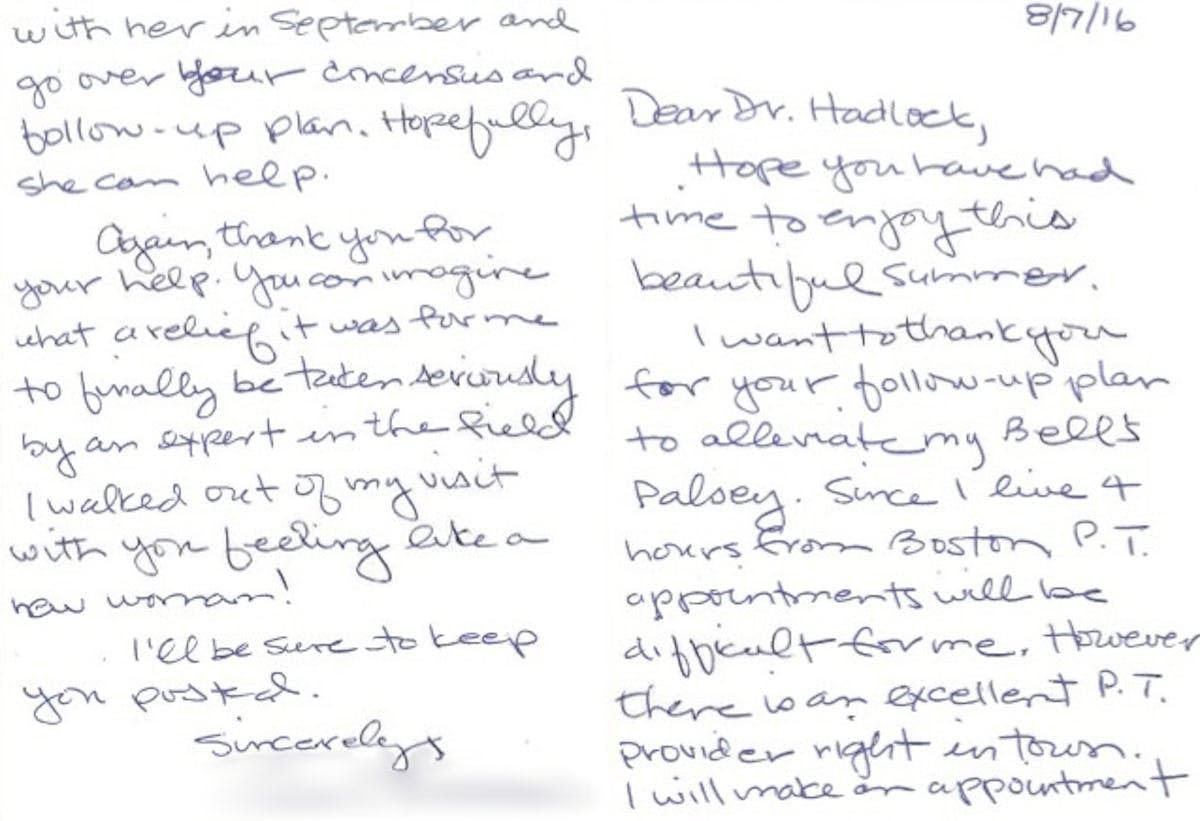 8/7/16
Dear Dr. Hadlock,
Hope you have had
time to enjoy this
beautiful summer.
I want to thank you
for your follow-up plan
to alleviate my Bell's
Palsey. Since I live 4
hours from Boston, P.T.
appointments will be
difficult for me. However
there is an excellent P.T.
provider right in town.
I will make an appointment
with her in September and
go over your concensus and
follow-up plan. Hopefully,
she can help.
Again, thank you for
your help. You can imagine
what a relief it was for me
to finally be taken seriously
by an expert in the field
I walked out of my visit
with you feeling like a
new woman!
I'll be sure to keep
you posted.
Sincerely,